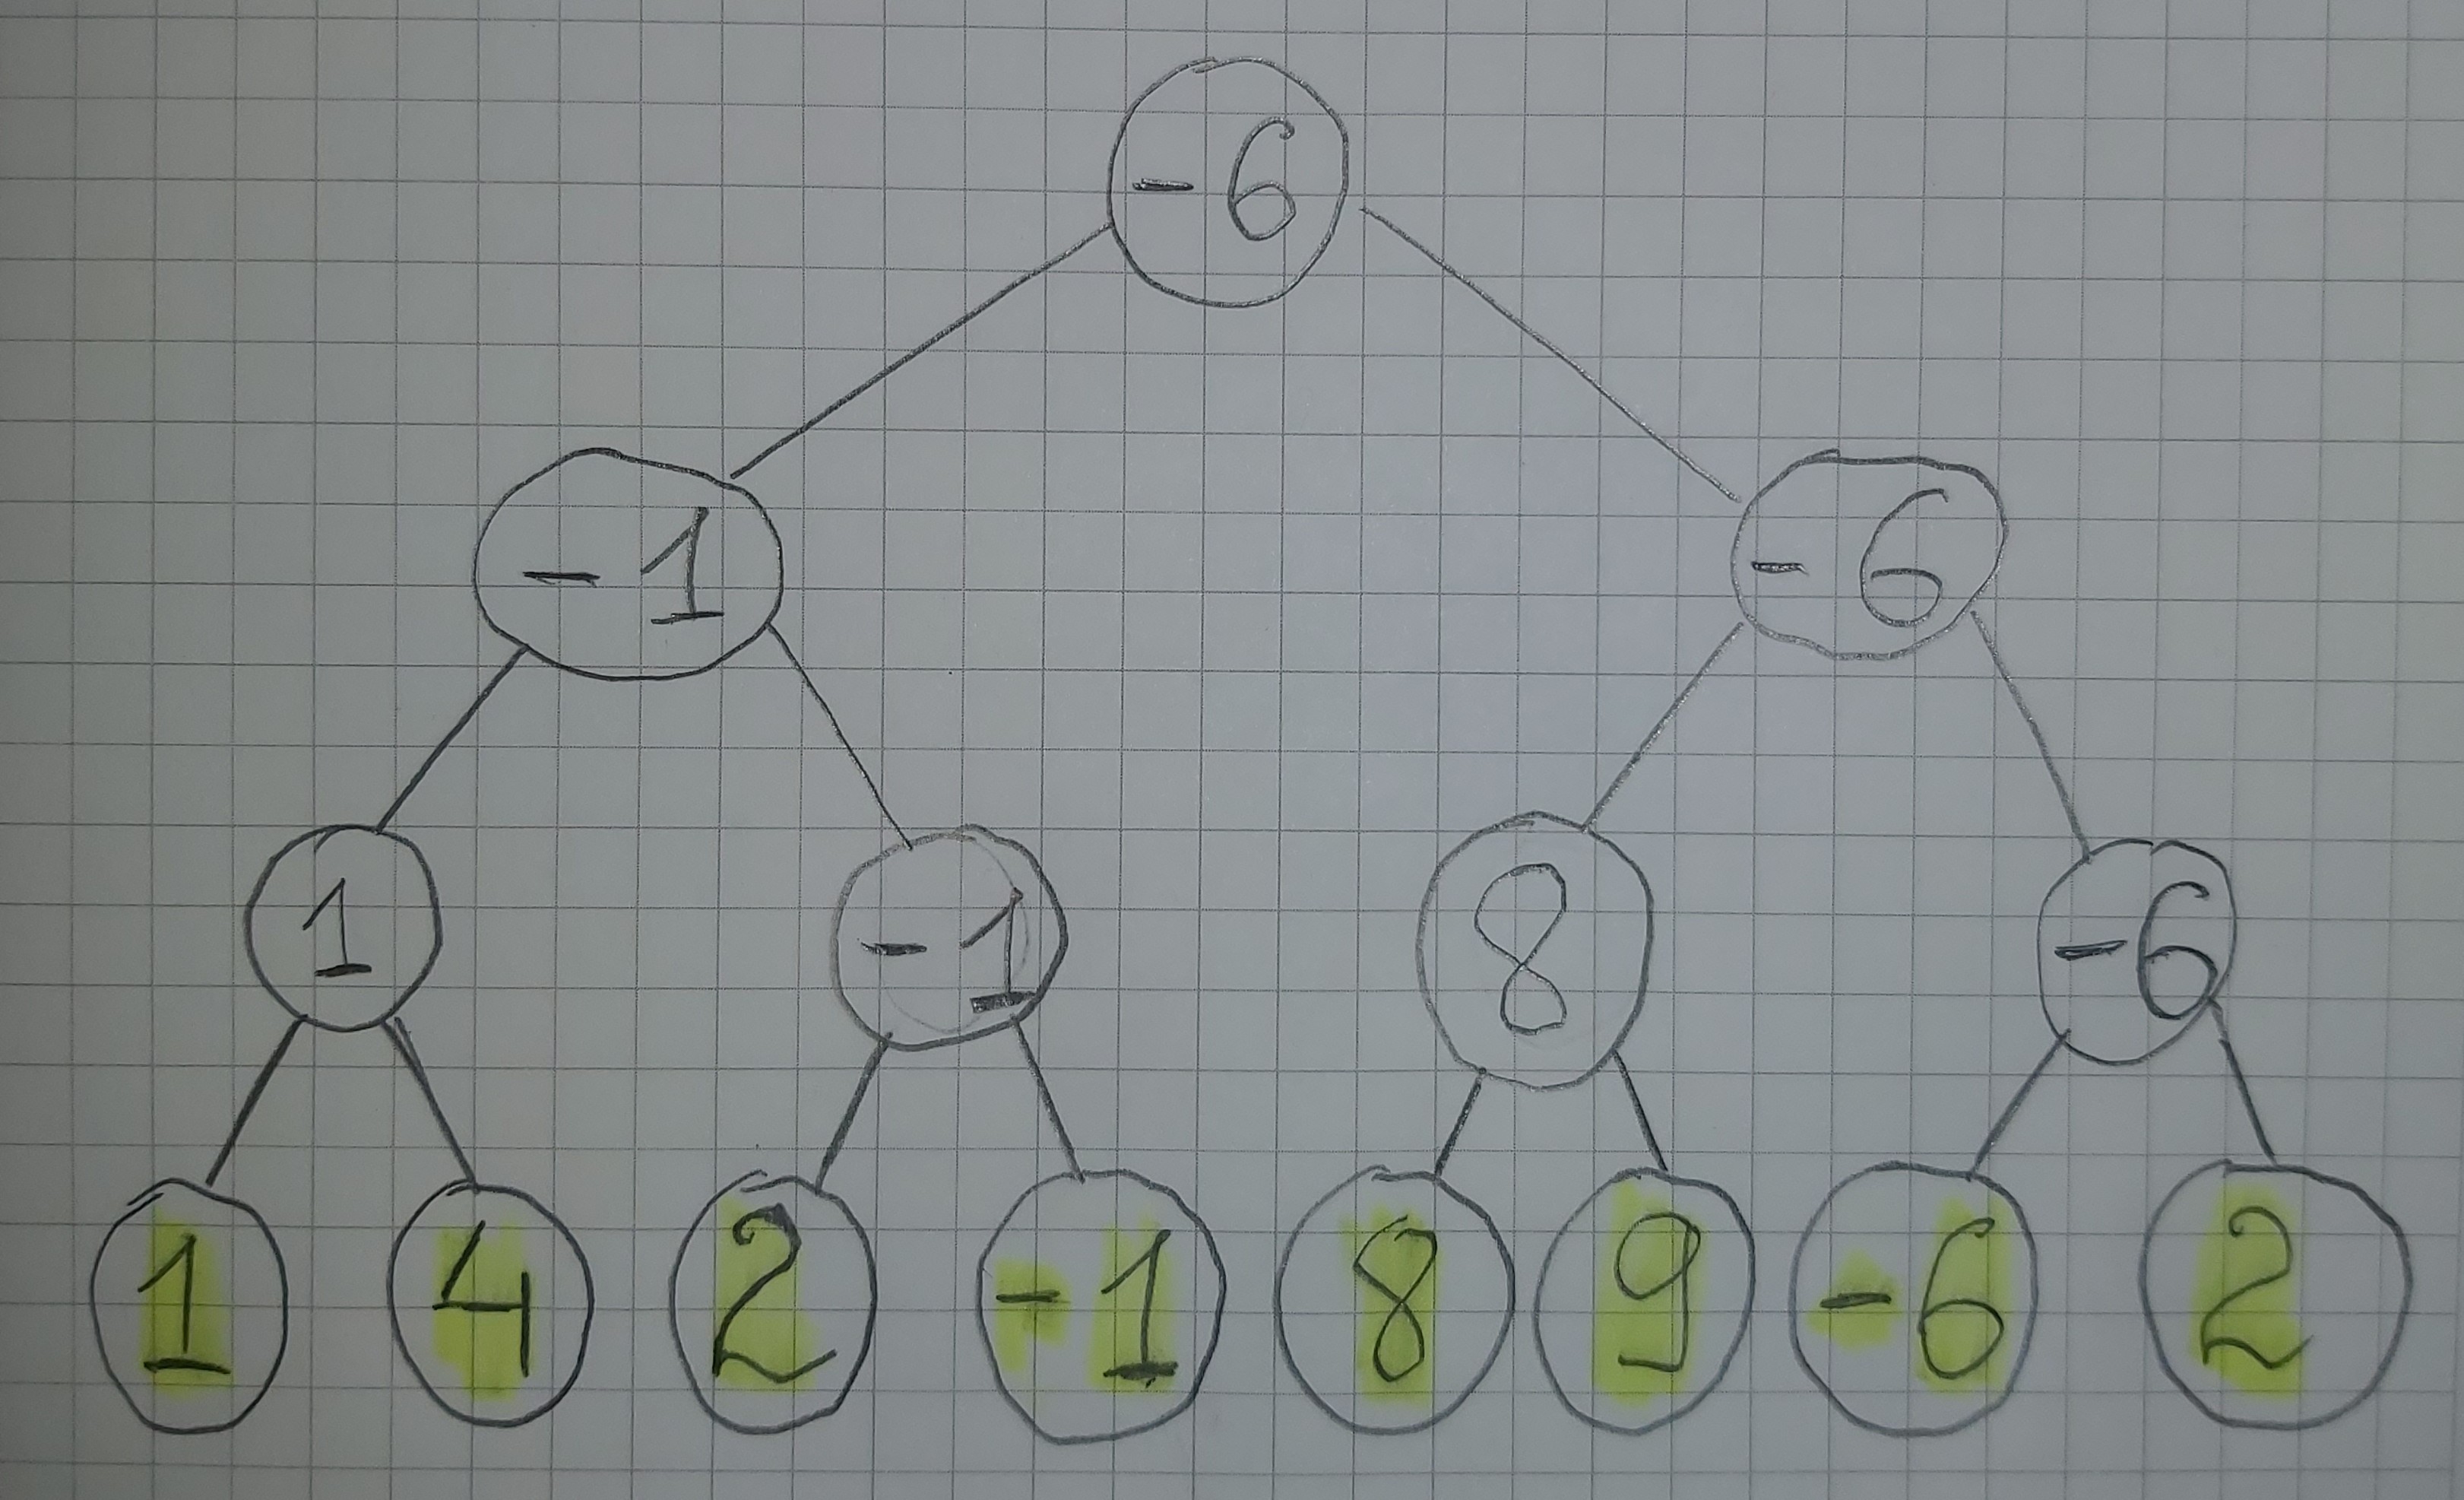 - 6
- 1 - 6
1 - 1 8 - 6
1 4 2 - 1 8 9 - 6 2